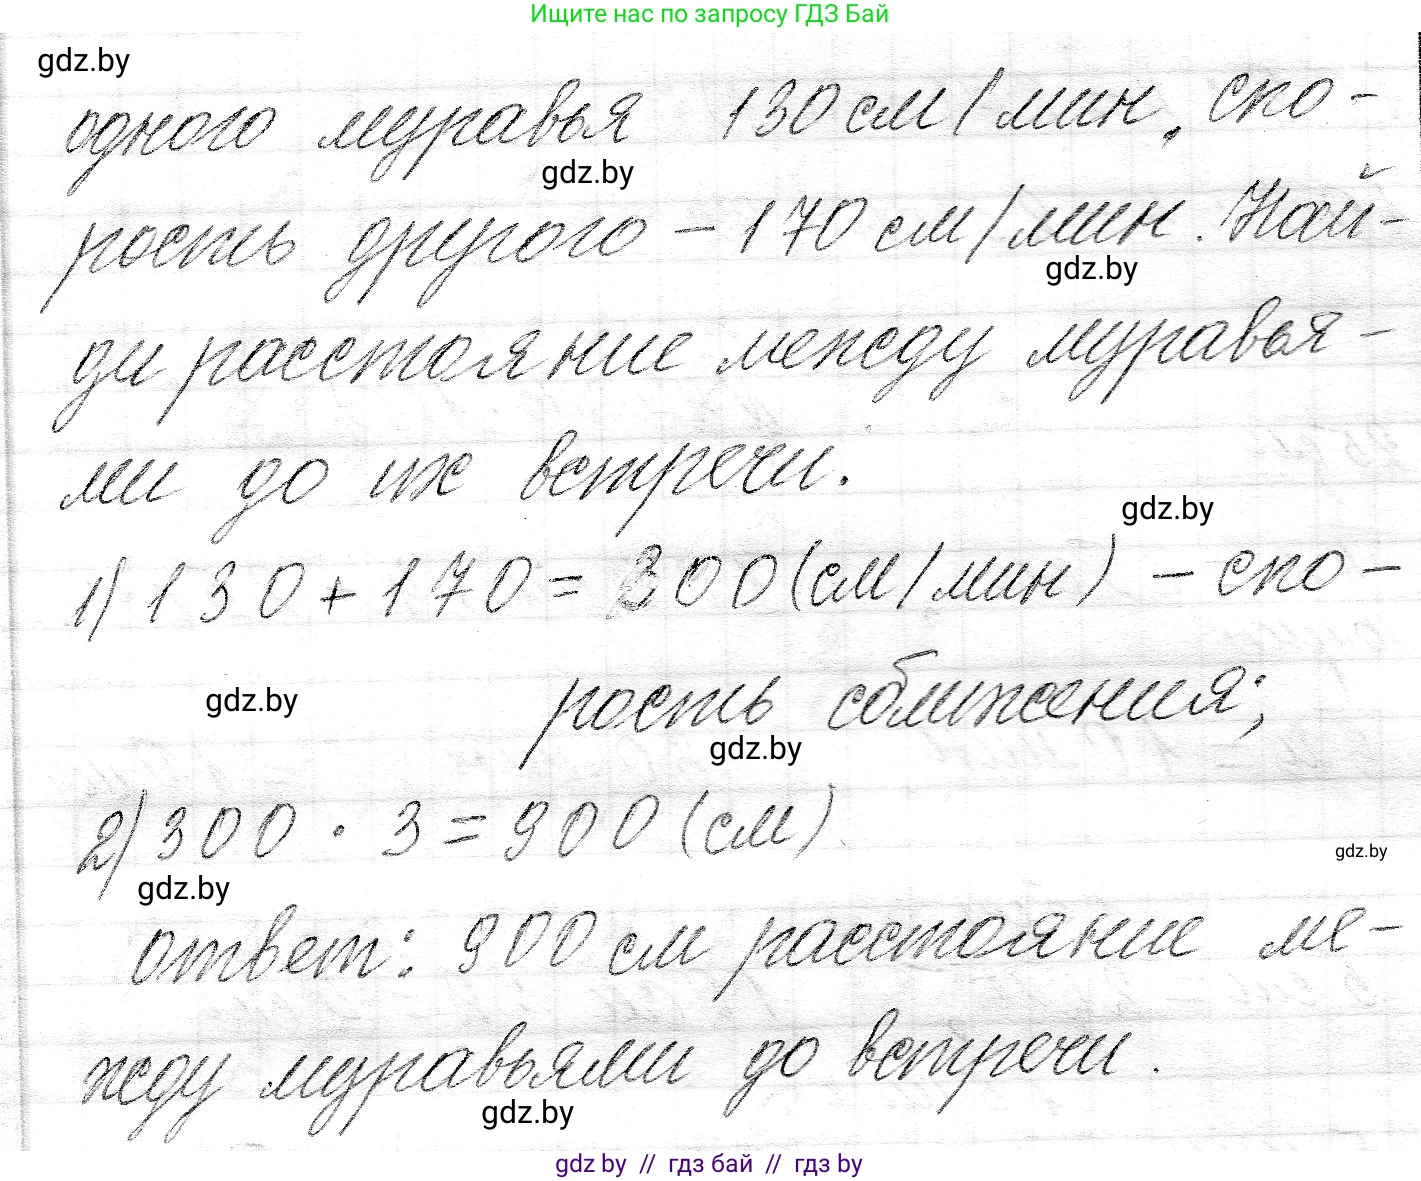 Ищите нас по запросу ГДЗ Бай
gdz.by
одного муравья 130 см/мин, ско-
gdz.by
рость другого – 170 см/мин. Най-
gdz.by
ди расстояние между муравья-
ми до их встречи.
gdz.by
1) 130 + 170 = 300 (см/мин) – ско-
gdz.by
рость сближения;
gdz.by
2) 300 · 3 = 900 (см)
gdz.by
gdz.by
ответ: 900 см расстояние ме-
жду муравьями до встречи.
gdz.by
gdz by // гдз бай // гдз by